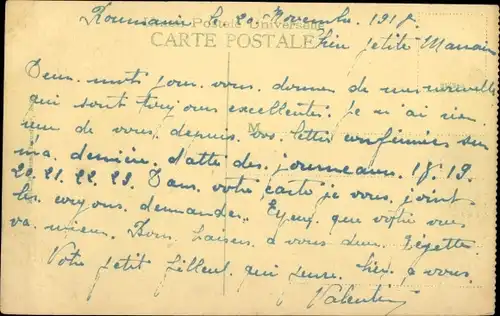 Roumanie le 20 Novembre 1917.
Postale Universelle
CARTE POSTALE
petite Maman
Deux mots pour vous donner de mes nouvelles
qui sont toujours excellentes. Je n'ai rien
de vous depuis vos lettres
ma dernière datte des journeaux 18.19.
20.21.22.23. Dans votre carte je vous joint
les crayons demandes. que votre
va mieux. Bons baisers a vous deux.
Votre petit filleul qui pense bien a vous
Valentin